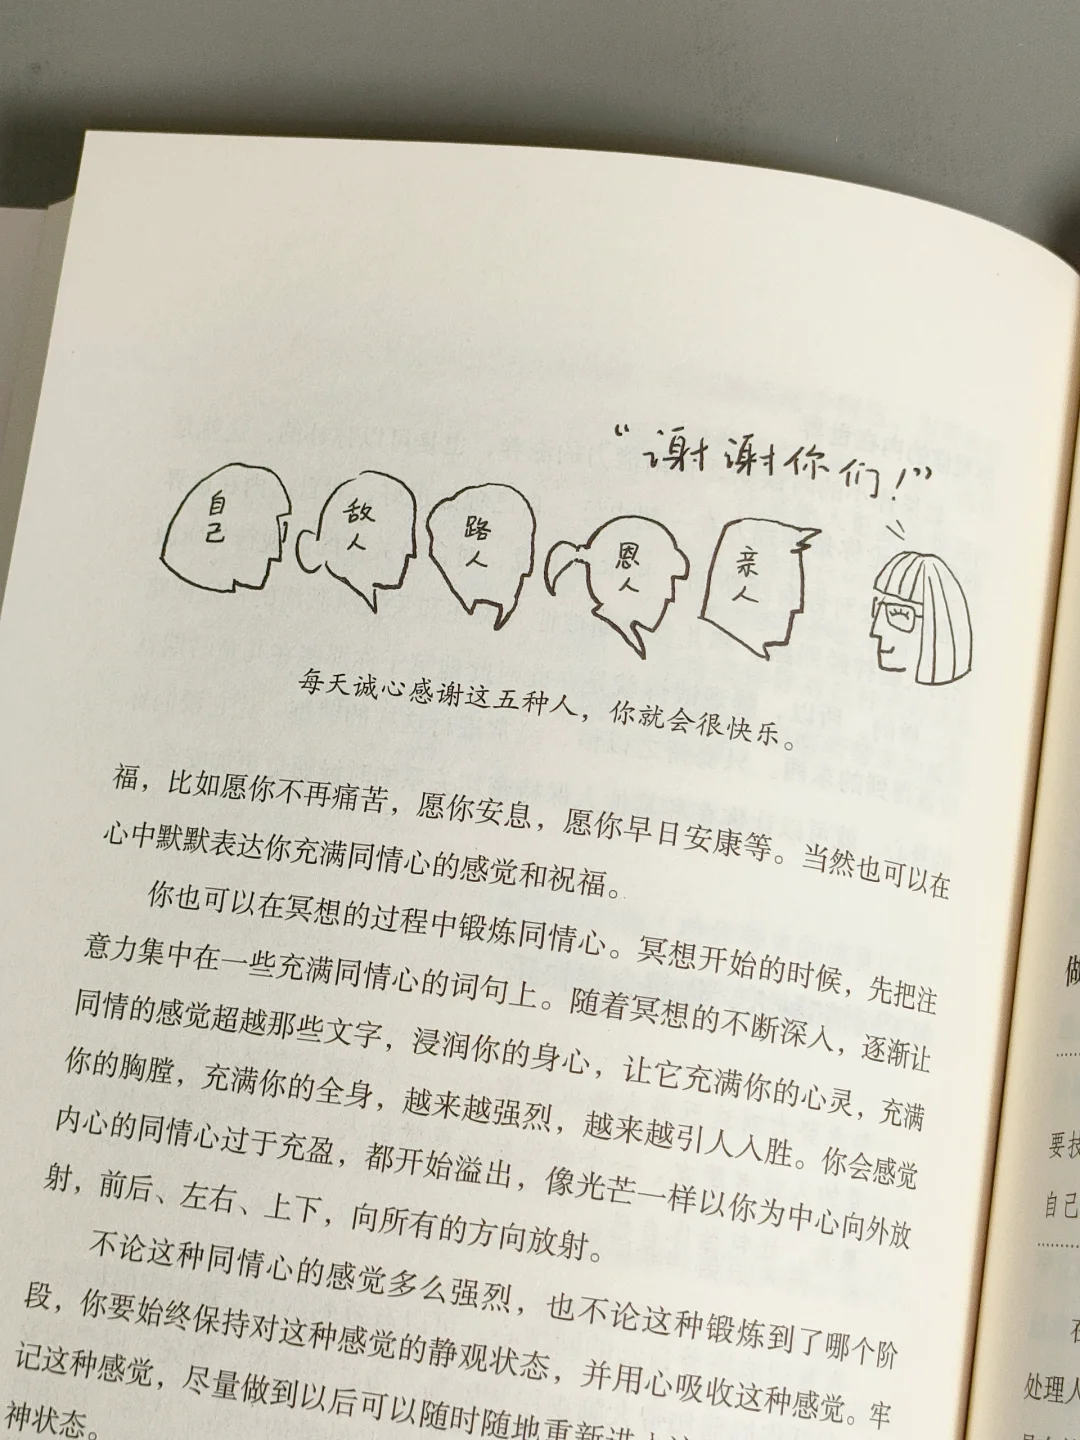 “谢谢你们！”
自己
敌人
路人
恩人
亲人
每天诚心感谢这五种人，你就会很快乐。
福，比如愿你不再痛苦，愿你安息，愿你早日安康等。当然也可以在
心中默默表达你充满同情心的感觉和祝福。
你也可以在冥想的过程中锻炼同情心。冥想开始的时候，先把注
意力集中在一些充满同情心的词句上。随着冥想的不断深入，逐渐让
同情的感觉超越那些文字，浸润你的身心，让它充满你的心灵，充满
你的胸膛，充满你的全身，越来越强烈，越来越引人入胜。你会感觉
内心的同情心过于充盈，都开始溢出，像光芒一样以你为中心向外放
射，前后、左右、上下，向所有的方向放射。
不论这种同情心的感觉多么强烈，也不论这种锻炼到了哪个阶
段，你要始终保持对这种感觉的静观状态，并用心吸收这种感觉。牢
记这种感觉，尽量做到以后可以随时随地重新进
神状态。
做
要技
自己
在
处理人